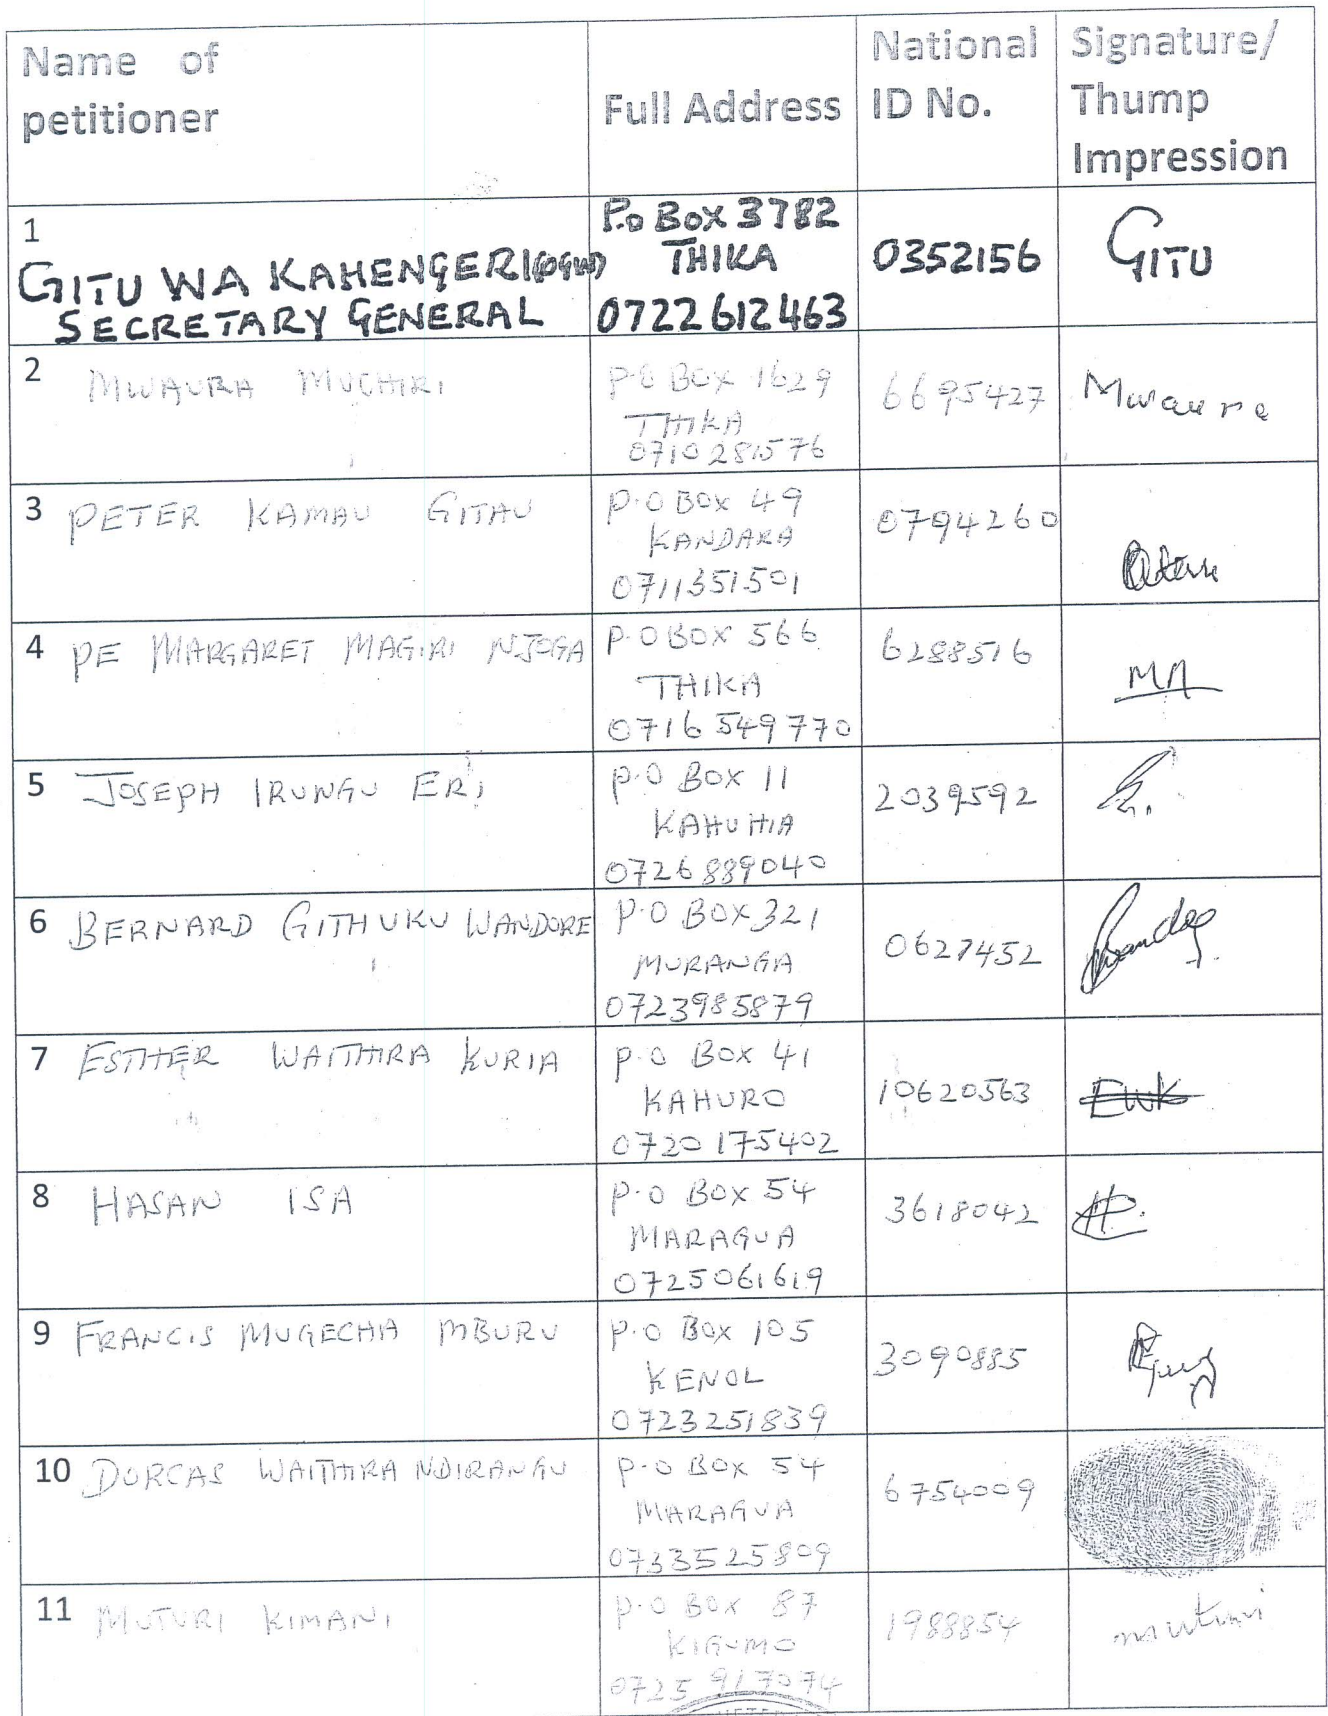 Name of
petitioner
Full Address
National
ID No.
Signature/
Thump
Impression
1
GITU WA KAHENGERI(OGW)
SECRETARY GENERAL
P.O BOX 3782
THIKA
0722612463
0352156
GITU
2 MWAURA MUCHIRI
P.O BOX 1629
THIKA
0710281576
6695427
Mwaura
3 PETER KAMAU GITAU
P.O BOX 49
KANDARA
0711351501
0794260
4 PE MARGARET MAGIRI NJOGA
P.O BOX 566
THIKA
0716549770
6288516
MN
5 JOSEPH IRUNGU ERI
P.O BOX 11
KAHUHIA
0726889040
2039592
6 BERNARD GITHUKU WANDORE
P.O BOX 321
MURANGA
0723985879
0627452
7 ESTHER WAITHIRA KURIA
P.O BOX 41
KAHURO
0720175402
10620563
EWK
8 HASAN ISA
P.O BOX 54
MARAGUA
0725061619
3618042
9 FRANCIS MUGECHA MBURU
P.O BOX 105
KENOL
0723251839
3090885
10 DORCAS WAITHIRA NDIRANGU
P.O BOX 54
MARAGUA
0733525809
6754009
11 MUTURI KIMANI
P.O BOX 87
KIGUMO
0725 917074
1988854
muturi